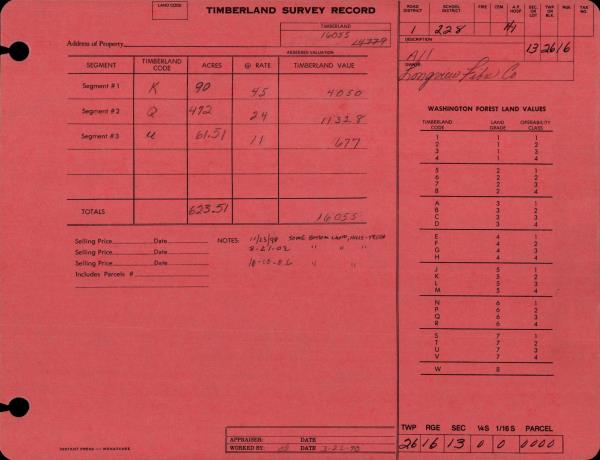 LAND CODE
TIMBERLAND SURVEY RECORD
TIMBERLAND
16055
Address of Property
ASSESSED VALUATION
SEGMENT TIMBERLAND CODE ACRES @ RATE TIMBERLAND VAUE
Segment #1 K 90 45 4050
Segment #2 Q 472 24 11328
Segment #3 U 61.51 11 677
TOTALS 623.51 16055
Selling Price Date
Selling Price Date
Selling Price Date
Includes Parcels #
NOTES: 11/23/98 SOME BOTTOM LAND, HILLS-TREES
" " "
" "
APPRAISER: DATE
WORKED BY: DATE 3-22-90
ROAD DISTRICT SCHOOL DISTRICT FIRE CEM A.P. HOSP SEC. OR LOT TWP OR BLK RGE TAX NO.
1 228 #1 13 26 16
DESCRIPTION
All
OWNER
Longview Fibre Co
WASHINGTON FOREST LAND VALUES
TIMBERLAND CODE LAND GRADE OPERABILITY CLASS
1 1 1
2 1 2
3 1 3
4 1 4
5 2 1
6 2 2
7 2 3
8 2 4
A 3 1
B 3 2
C 3 3
D 3 4
E 4 1
F 4 2
G 4 3
H 4 4
J 5 1
K 5 2
L 5 3
M 5 4
N 6 1
P 6 2
Q 6 3
R 6 4
S 7 1
T 7 2
U 7 3
V 7 4
W 8
TWP RGE SEC ¼S 1/16 S PARCEL
26 16 13 0 0 0000